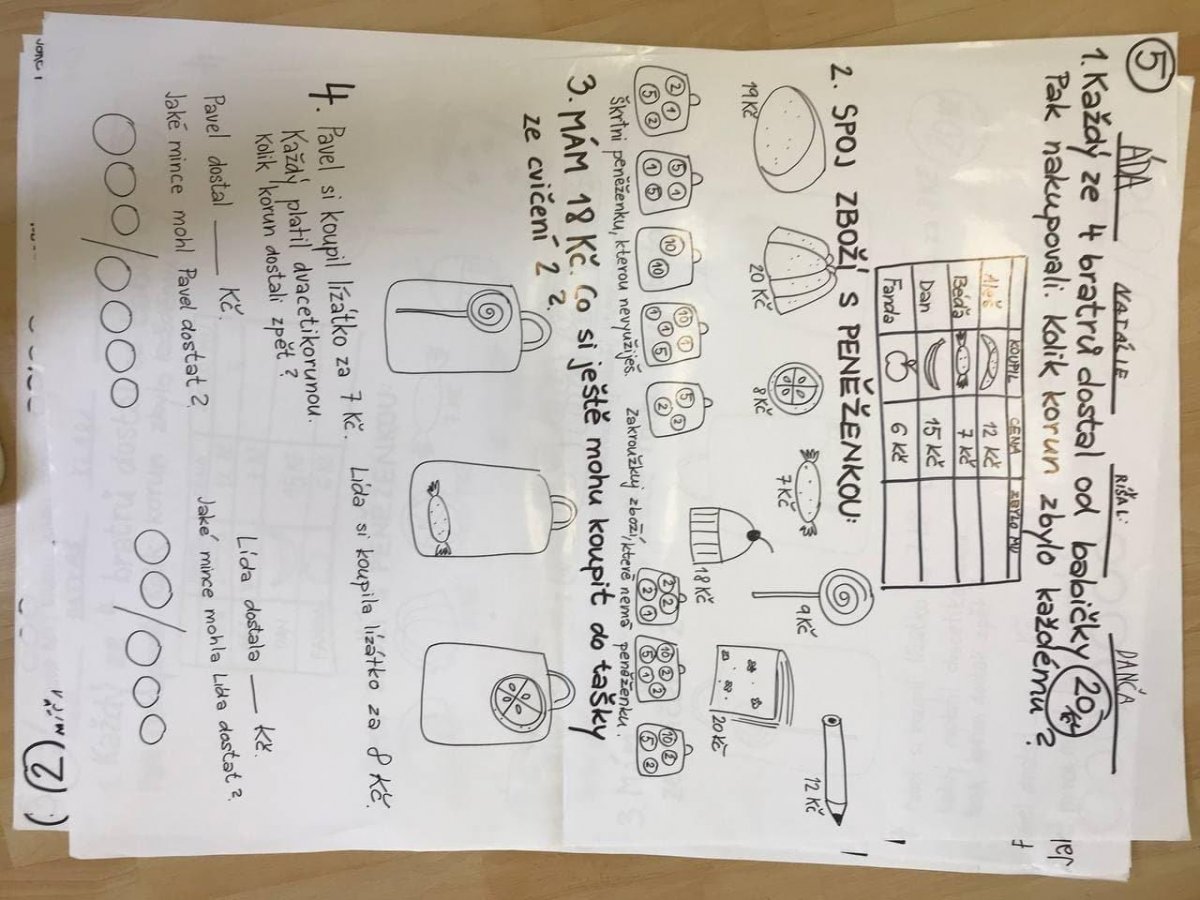 5
ÁDA
NATÁLIE
RÍŠA
DANČA
1. Každý ze 4 bratrů dostal od babičky 20 Kč
Pak nakupovali. Kolik korun zbylo každému?
KOUPIL CENA ZBYLO MU
Aleš 12 Kč
Béďa 7 Kč
Dan 15 Kč
Fanda 6 Kč
2. SPOJ ZBOŽÍ S PENĚŽENKOU:
19 Kč
20 Kč
8 Kč
7 Kč
18 Kč
9 Kč
20 Kč
12 Kč
2 1 5 2
5 1 1 5
10 10
10 1 1 1 5
5 2 2
2 2 2 1
10 2 2 5 1 2
10 2 5 2
škrtni peněženku, kterou nevyužiješ. zakroužkuj zboží, které nemá peněženku.
3. MÁM 18 Kč. Co si ještě mohu koupit do tašky
ze cvičení 2?
4. Pavel si koupil lízátko za 7 Kč. Lída si koupila lízátko za 8 Kč.
Každý platil dvacetikorunou.
Kolik korun dostali zpět?
Pavel dostal ___ Kč. Lída dostala ___ Kč.
Jaké mince mohl Pavel dostat? Jaké mince mohla Lída dostat?
2